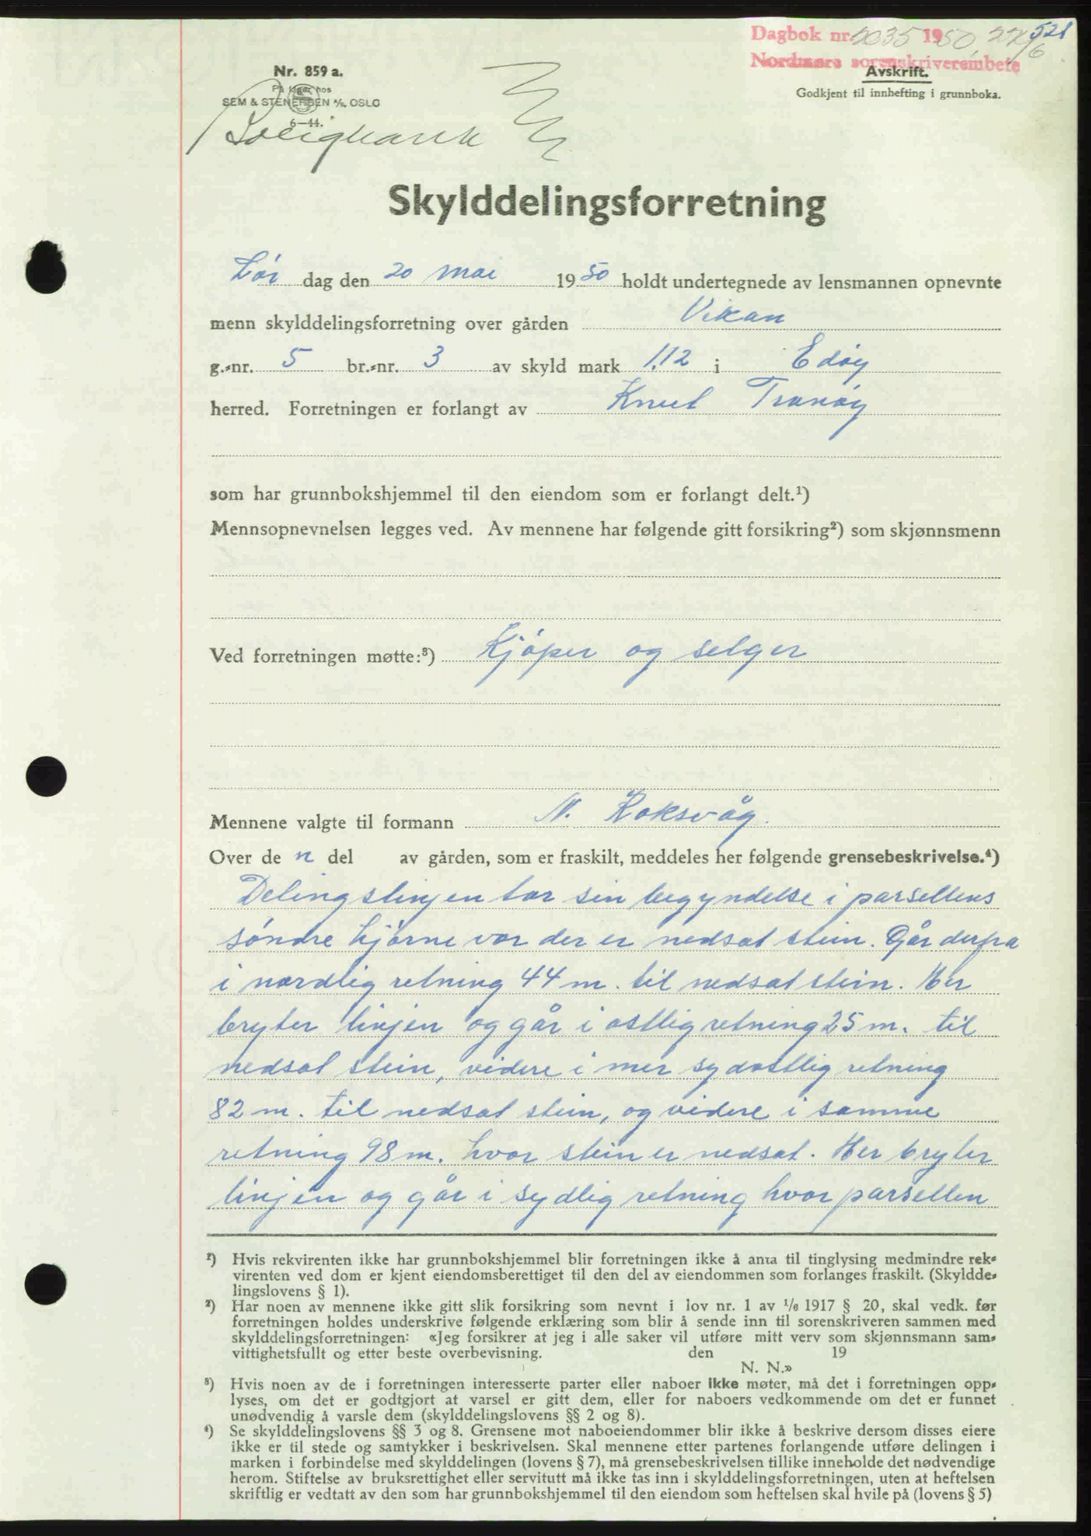 Dagbok nr. 2035 1950, 22/6 521
Nordmøre sorenskriverembete
Nr. 859 a.
På lager hos
SEM & STENERSEN A/S, OSLO
6—44.
Avskrift.
Godkjent til innhefting i grunnboka.
Skylddelingsforretning
Lør dag den 20 mai 1950 holdt undertegnede av lensmannen opnevnte
menn skylddelingsforretning over gården Vikan
g.-nr. 5 br.-nr. 3 av skyld mark 1,12 i Edøy
herred. Forretningen er forlangt av Knut Tranøy
som har grunnbokshjemmel til den eiendom som er forlangt delt.¹)
Mennsopnevnelsen legges ved. Av mennene har følgende gitt forsikring²) som skjønnsmenn
Ved forretningen møtte:³) Kjøper og selger
Mennene valgte til formann N. Roksvåg.
Over de n del av gården, som er fraskilt, meddeles her følgende grensebeskrivelse.⁴)
Delingslinjen tar sin begyndelse i parsellens
søndre hjørne vor der er nedsat stein. Går derpa
i nordlig retning 44 m. til nedsat stein. Her
bryter linjen og går i østlig retning 25 m. til
nedsat stein, videre i mer sydøstlig retning
82 m. til nedsat stein, og videre i samme
retning 98 m. hvor stein er nedsat. Her bryter
linjen og går i sydlig retning hvor parsellen
¹) Hvis rekvirenten ikke har grunnbokshjemmel blir forretningen ikke å anta til tinglysing medmindre rek-
virenten ved dom er kjent eiendomsberettiget til den del av eiendommen som forlanges fraskilt. (Skyldde-
lingslovens § 1).
²) Har noen av mennene ikke gitt slik forsikring som nevnt i lov nr. 1 av ¹/₆ 1917 § 20, skal vedk. før
forretningen holdes underskrive følgende erklæring som blir å sende inn til sorenskriveren sammen med
skylddelingsforretningen: «Jeg forsikrer at jeg i alle saker vil utføre mitt verv som skjønnsmann sam-
vittighetsfullt og etter beste overbevisning. den 19
N. N.»
³) Hvis noen av de i forretningen interesserte parter eller naboer ikke møter, må det i forretningen opp-
lyses, om det er godtgjort at varsel er gitt dem, eller for naboers vedkommende om det er funnet
unødvendig å varsle dem (skylddelingslovens §§ 2 og 8).
⁴) Se skylddelingslovens §§ 3 og 8. Grensene mot naboeiendommer blir ikke å beskrive dersom disses eiere
ikke er til stede og samtykker i beskrivelsen. Skal mennene etter partenes forlangende utføre delingen i
marken i forbindelse med skylddelingen (lovens § 7), må grensebeskrivelsen tillike inneholde det nødvendige
herom. Stiftelse av bruksrettighet eller servitutt må ikke tas inn i skylddelingsforretningen, uten at heftelsen
skriftlig er vedtatt av den som har grunnbokshjemmel til den eiendom som heftelsen skal hvile på (lovens § 5)